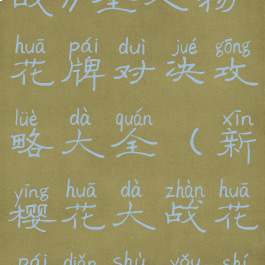 战》里人物
huā pái duì jué gōng
花牌对决攻
lüè dà quán xīn
略大全（新
yīng huā dà zhàn huā
樱花大战花
pái diǎn shù yǒu shí